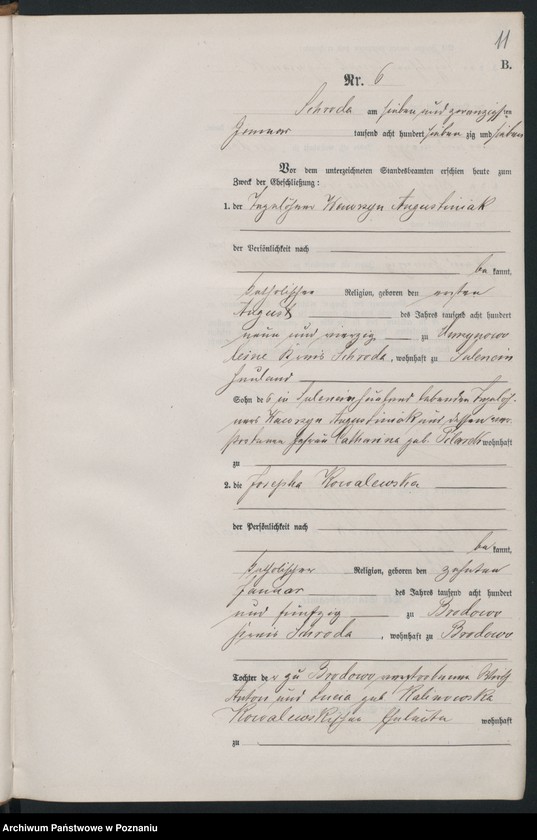 11
B.
Nr. 6
Schroda am sieben und zwanzigsten
Januar tausend acht hundert sieben zig und sieben
Vor dem unterzeichneten Standesbeamten erschien heute zum
Zweck der Eheschließung:
1. der Tagelöhner Wawrzyn Augustiniak
der Persönlichkeit nach
be kannt,
katholischer Religion, geboren den ersten
August des Jahres tausend acht hundert
neun und vierzig zu
Kreis Schroda, wohnhaft zu
Hauland
Sohn des in Hauland lebenden Tagelöh-
ners Wawrzyn Augustiniak und dessen ver-
storbenen Ehefrau Catharina geb. wohnhaft
zu
2. die Josepha Kowalewska
der Persönlichkeit nach
be kannt,
katholischer Religion, geboren den zehnten
Januar des Jahres tausend acht hundert
und fünfzig zu Brodowo
Kreis Schroda, wohnhaft zu Brodowo
Tochter der zu Brodowo verstorbenen
Anton und Lucia geb. Kalinowska
Kowalewski'schen Eheleute wohnhaft
zu
Archiwum Państwowe w Poznaniu